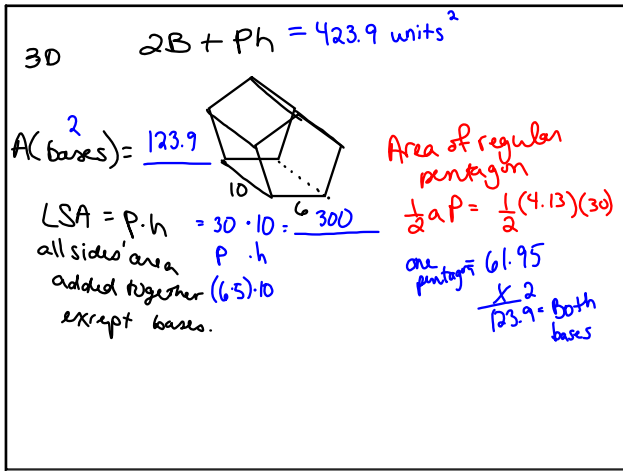 3D
2B + Ph = 423.9 units²
A(2 bases) = 123.9
10
6
LSA = p.h = 30 · 10 = 300
all sides' area P .h
added together (6·5)·10
except bases.
Area of regular
pentagon
1/2 a P = 1/2 (4.13)(30)
one pentagon = 61.95
x 2
123.9 = Both
bases